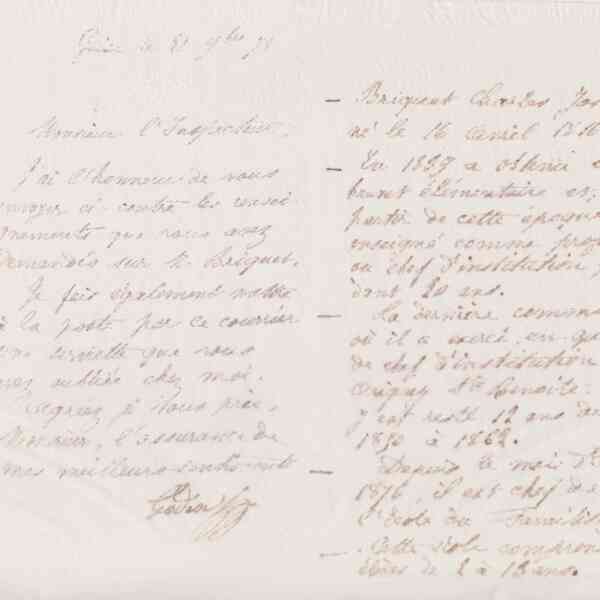 Monsieur l'Inspecteur,
J'ai l'honneur de vous
envoyer ci-contre les rensei
gnements que vous avez
demandés sur M. Briquet.
Je fais également mettre
à la poste par ce courrier
une serviette que vous
avez oubliée chez moi.
Agréez je vous prie,
Monsieur, l'assurance de
mes meilleurs sentiments
Godin
— Briquet Charles
né le 16 avril
— En 18 a obtenu
brevet élémentaire et
partir de cette époque
enseigné comme
ou chef d'institution
dant 20 ans.
— La dernière
où il a exercé en
de chef d'institution
Origny Ste Benoite.
y est resté 12 ans de
1850 à 1862.
— Depuis le mois
1876, il est chef de
l'école du
— Cette école
élèves de 2 à 13 ans.